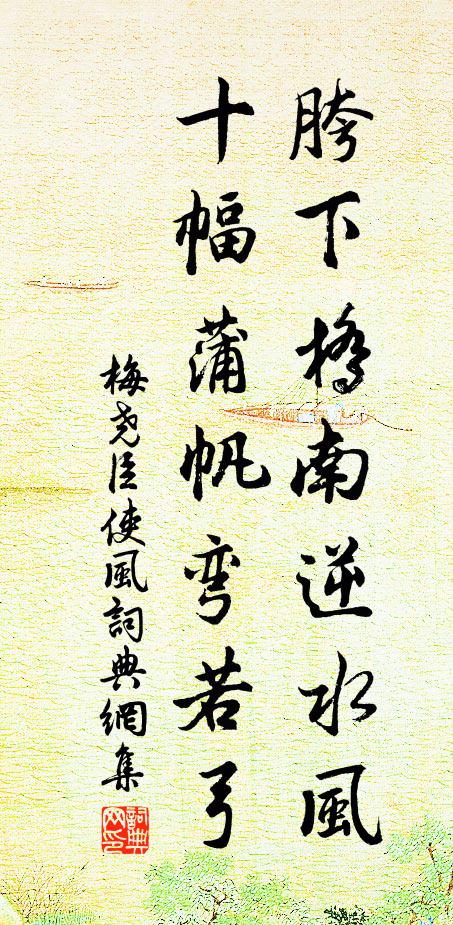 胯下橋南逆水風
十幅蒲帆彎若弓
梅堯臣使風詞典網集
詞典網印